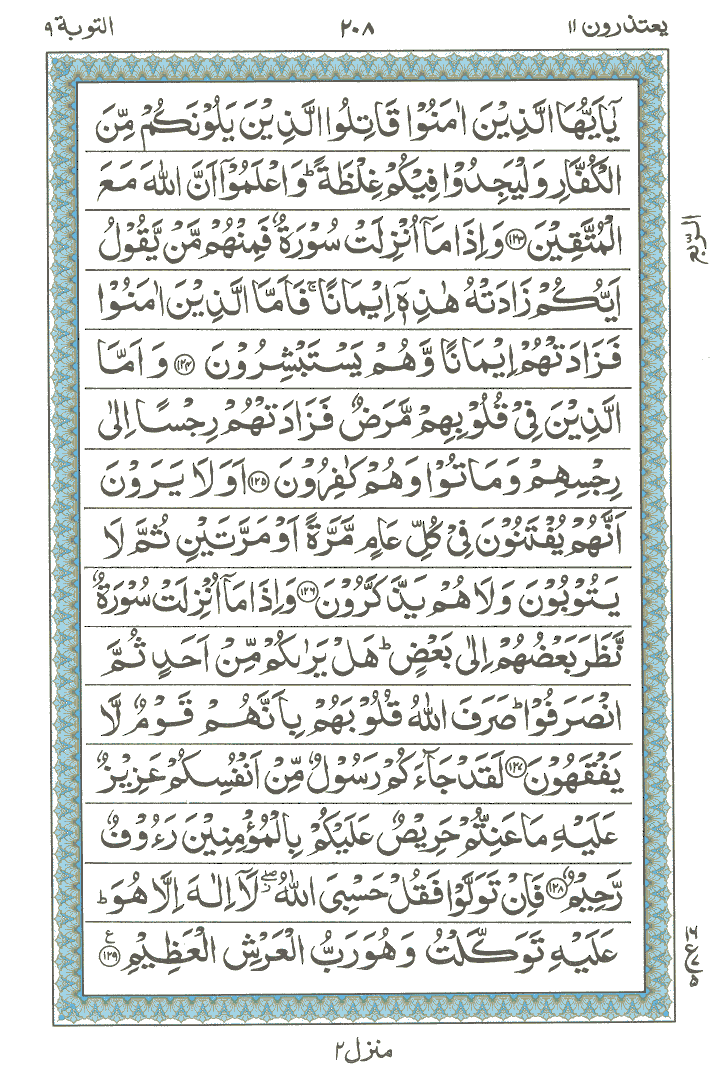 يعتذرون ١١ ٢٠٨ التوبة ٩
يٰۤاَيُّهَا الَّذِيْنَ اٰمَنُوْا قَاتِلُوا الَّذِيْنَ يَلُوْنَكُمْ مِّنَ
الْكُفَّارِ وَلْيَجِدُوْا فِيْكُمْ غِلْظَةً ؕ وَاعْلَمُوْۤا اَنَّ اللّٰهَ مَعَ
الْمُتَّقِيْنَ ۝۱۲۳ وَاِذَا مَاۤ اُنْزِلَتْ سُوْرَةٌ فَمِنْهُمْ مَّنْ يَّقُوْلُ
اَيُّكُمْ زَادَتْهُ هٰذِهٖۤ اِيْمَانًا ۚ فَاَمَّا الَّذِيْنَ اٰمَنُوْا
فَزَادَتْهُمْ اِيْمَانًا وَّهُمْ يَسْتَبْشِرُوْنَ ۝۱۲۴ وَاَمَّا
الَّذِيْنَ فِيْ قُلُوْبِهِمْ مَّرَضٌ فَزَادَتْهُمْ رِجْسًا اِلٰى
رِجْسِهِمْ وَمَاتُوْا وَهُمْ كٰفِرُوْنَ ۝۱۲۵ اَوَلَا يَرَوْنَ
اَنَّهُمْ يُفْتَنُوْنَ فِيْ كُلِّ عَامٍ مَّرَّةً اَوْ مَرَّتَيْنِ ثُمَّ لَا
يَتُوْبُوْنَ وَلَا هُمْ يَذَّكَّرُوْنَ ۝۱۲۶ وَاِذَا مَاۤ اُنْزِلَتْ سُوْرَةٌ
نَّظَرَ بَعْضُهُمْ اِلٰى بَعْضٍ ؕ هَلْ يَرٰىكُمْ مِّنْ اَحَدٍ ثُمَّ
انْصَرَفُوْا ؕ صَرَفَ اللّٰهُ قُلُوْبَهُمْ بِاَنَّهُمْ قَوْمٌ لَّا
يَفْقَهُوْنَ ۝۱۲۷ لَقَدْ جَآءَكُمْ رَسُوْلٌ مِّنْ اَنْفُسِكُمْ عَزِيْزٌ
عَلَيْهِ مَا عَنِتُّمْ حَرِيْصٌ عَلَيْكُمْ بِالْمُؤْمِنِيْنَ رَءُوْفٌ
رَّحِيْمٌ ۝۱۲۸ فَاِنْ تَوَلَّوْا فَقُلْ حَسْبِيَ اللّٰهُ ۖ لَاۤ اِلٰهَ اِلَّا هُوَ ؕ
عَلَيْهِ تَوَكَّلْتُ وَهُوَ رَبُّ الْعَرْشِ الْعَظِيْمِ ۝۱۲۹ ع
الربع
منزل ٢